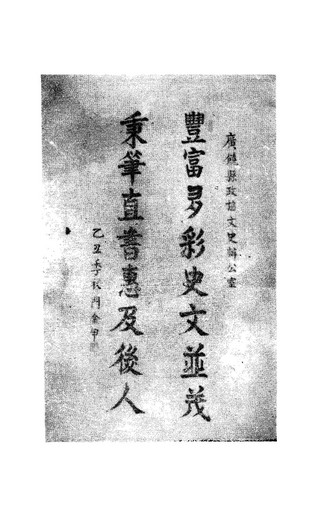 廣饒縣政協文史辦公室
豐富多彩史文並茂
秉筆直書惠及後人
乙丑季秋门金甲